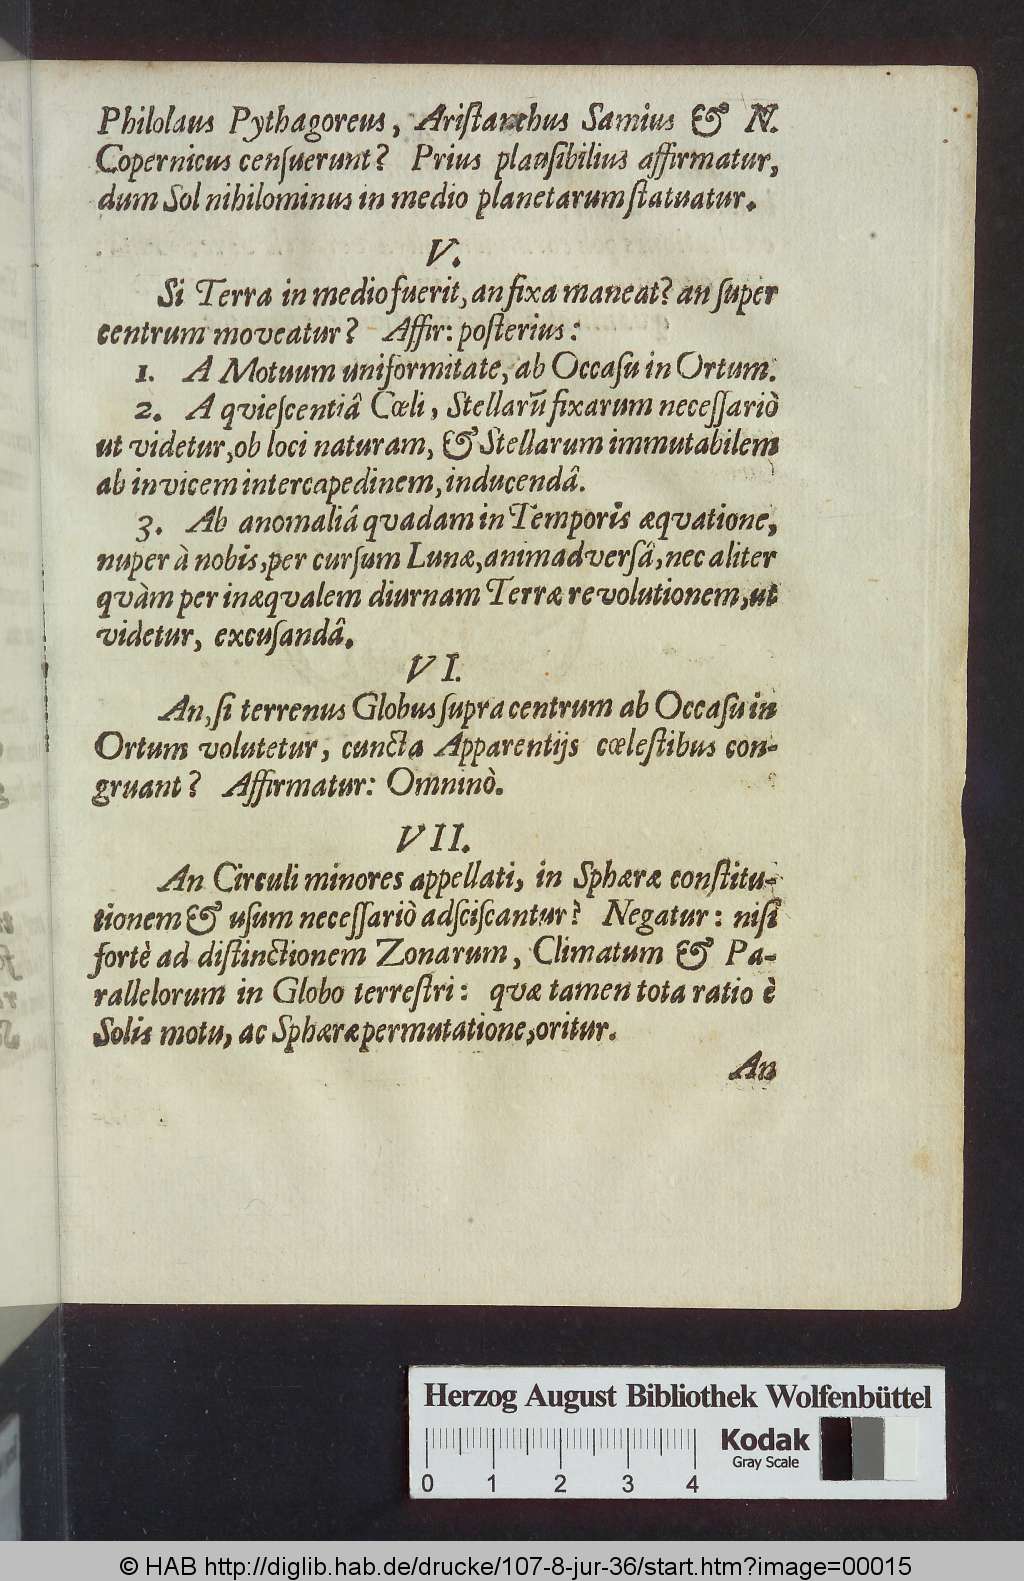 Philolaus Pythagoreus, Aristarchus Samius & N.
Copernicus censuerunt? Prius plausibilius affirmatur,
dum Sol nihilominus in medio planetarum statuatur.
V.
Si Terra in medio fuerit, an fixa maneat? an super
centrum moveatur? Affir: posterius:
1. A Motuum uniformitate, ab Occasu in Ortum.
2. A qviescentiâ Cœli, Stellarũ fixarum necessariò
ut videtur, ob loci naturam, & Stellarum immutabilem
ab invicem intercapedinem, inducendâ.
3. Ab anomaliâ qvadam in Temporis æqvatione,
nuper à nobis, per cursum Lunæ, animadversâ, nec aliter
qvàm per inæqvalem diurnam Terræ revolutionem, ut
videtur, excusandâ.
VI.
An, si terrenus Globus supra centrum ab Occasu in
Ortum volutetur, cuncta Apparentijs cœlestibus con-
gruant? Affirmatur: Omninò.
VII.
An Circuli minores appellati, in Sphæræ constitu-
tionem & usum necessariò adsciscantur? Negatur: nisi
fortè ad distinctionem Zonarum, Climatum & Pa-
rallelorum in Globo terrestri: qvæ tamen tota ratio è
Solis motu, ac Sphæræ permutatione, oritur.
An
Herzog August Bibliothek Wolfenbüttel
Kodak
Gray Scale
0 1 2 3 4
© HAB http://diglib.hab.de/drucke/107-8-jur-36/start.htm?image=00015